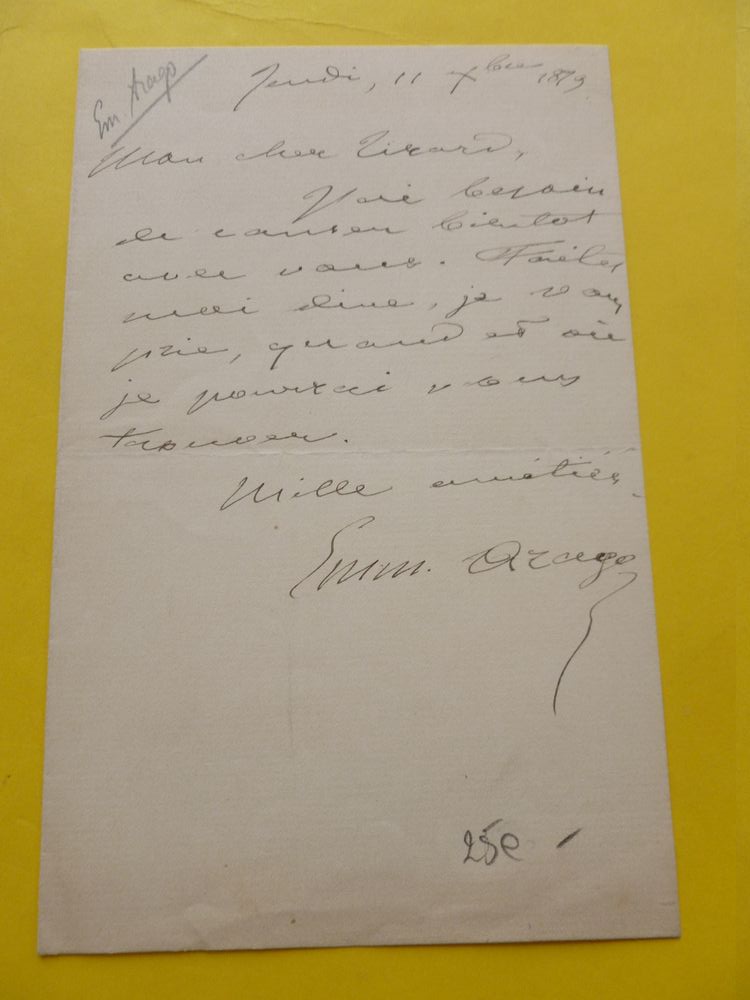 Em. Arago
Jeudi, 11 Xbre 1879
Mon cher Tirard,
J'ai besoin
de causer bientot
avec vous. Faites
moi dire, je vous
prie, quand et où
je pourrai vous
trouver.
Mille amitiés.
Emm. Arago
25e